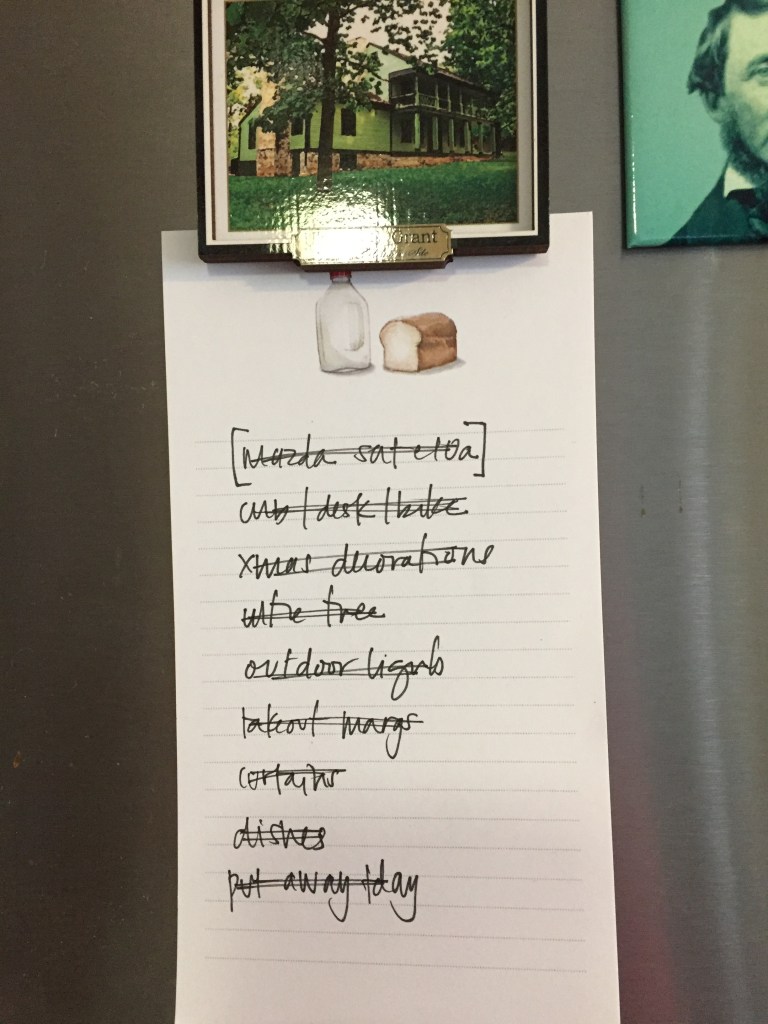 Grant
[Mazda sat e10a]
curb | desk | bike
xmas decorations
wtre tree
outdoor lights
takeout margs
curtains
dishes
put away tday